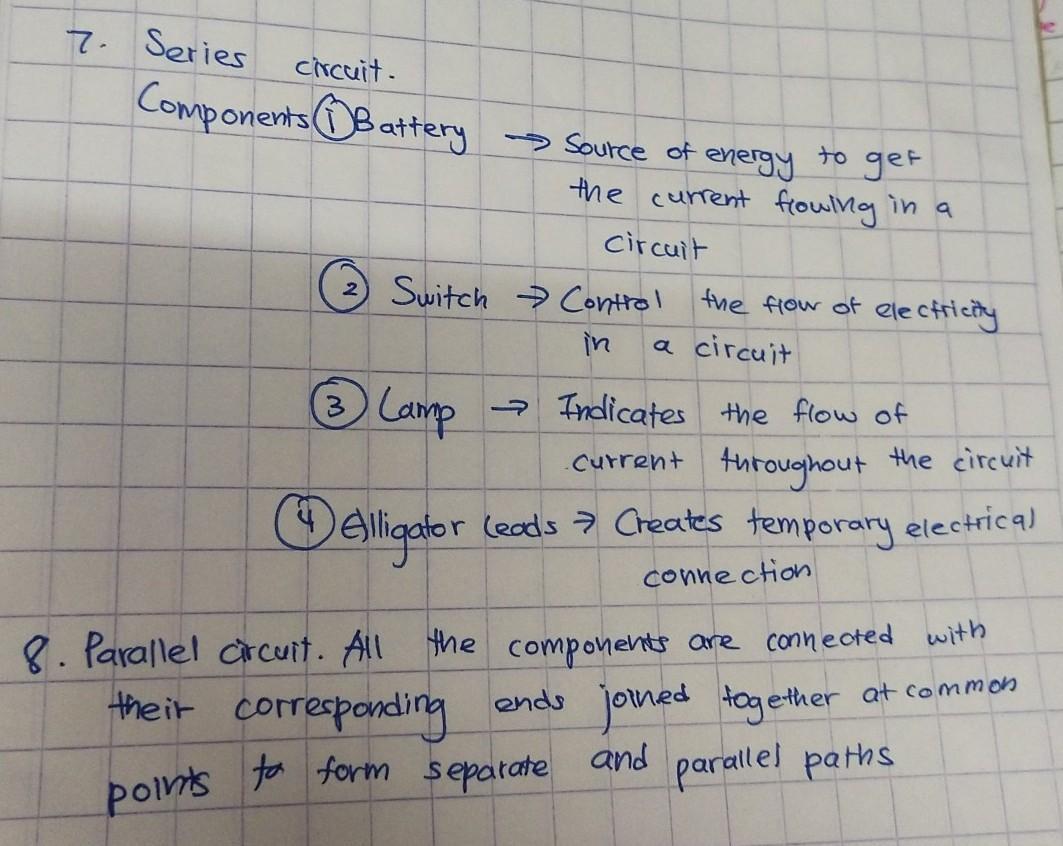 7. Series circuit.
Components ① Battery → Source of energy to get
the current flowing in a
circuit
② Switch → Control the flow of electricity
in a circuit
③ Lamp → Indicates the flow of
current throughout the circuit
④ Alligator leads → Creates temporary electrical
connection
8. Parallel circuit. All the components are connected with
their corresponding ends joined together at common
points to form separate and parallel paths